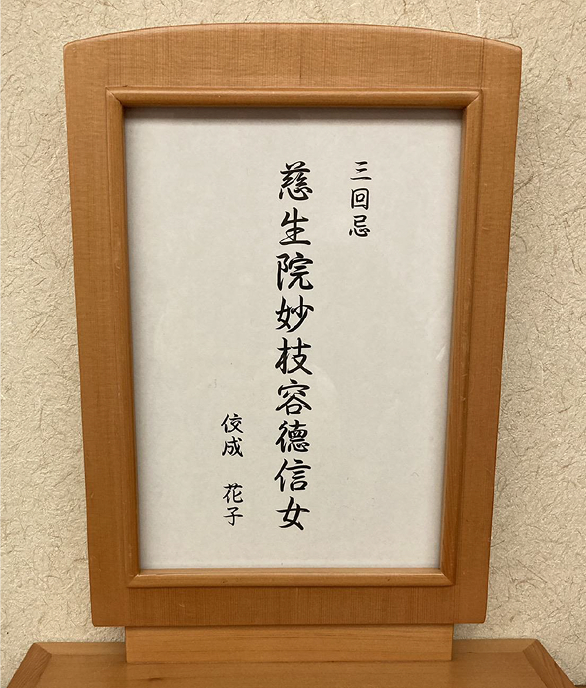 三回忌
慈生院妙枝容德信女
佼成 花子